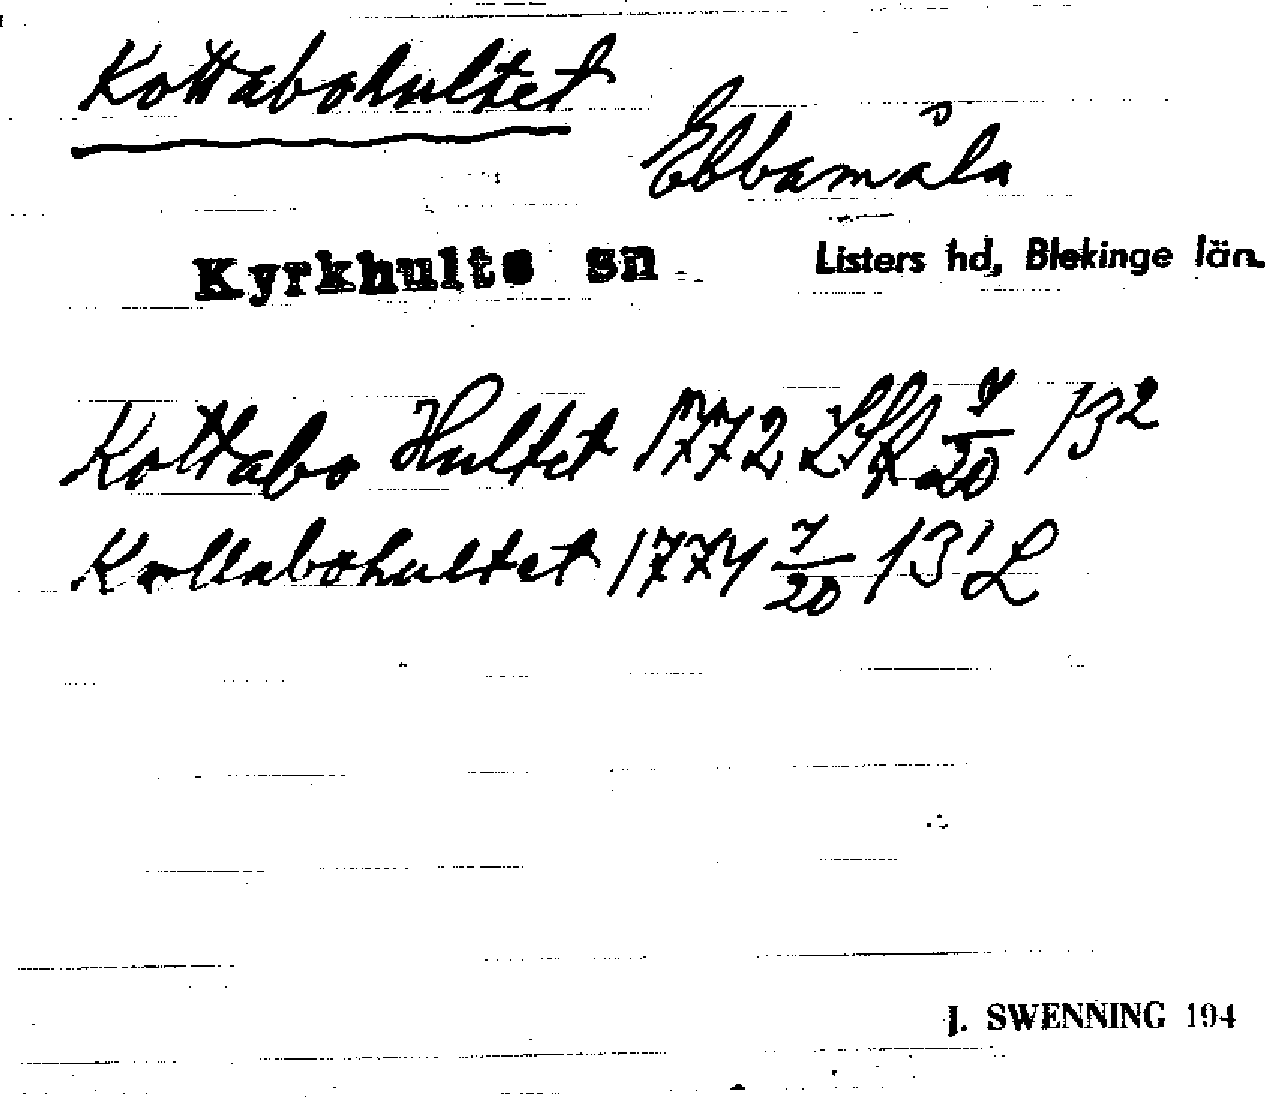 Kottabohultet
Ebbamåla
Kyrkhults sn Listers hd, Blekinge län.
Kottabo Hultet 1772 LSA 7/20 132
Kollabohultet 1774 7/20 13'L
J. SWENNING 194